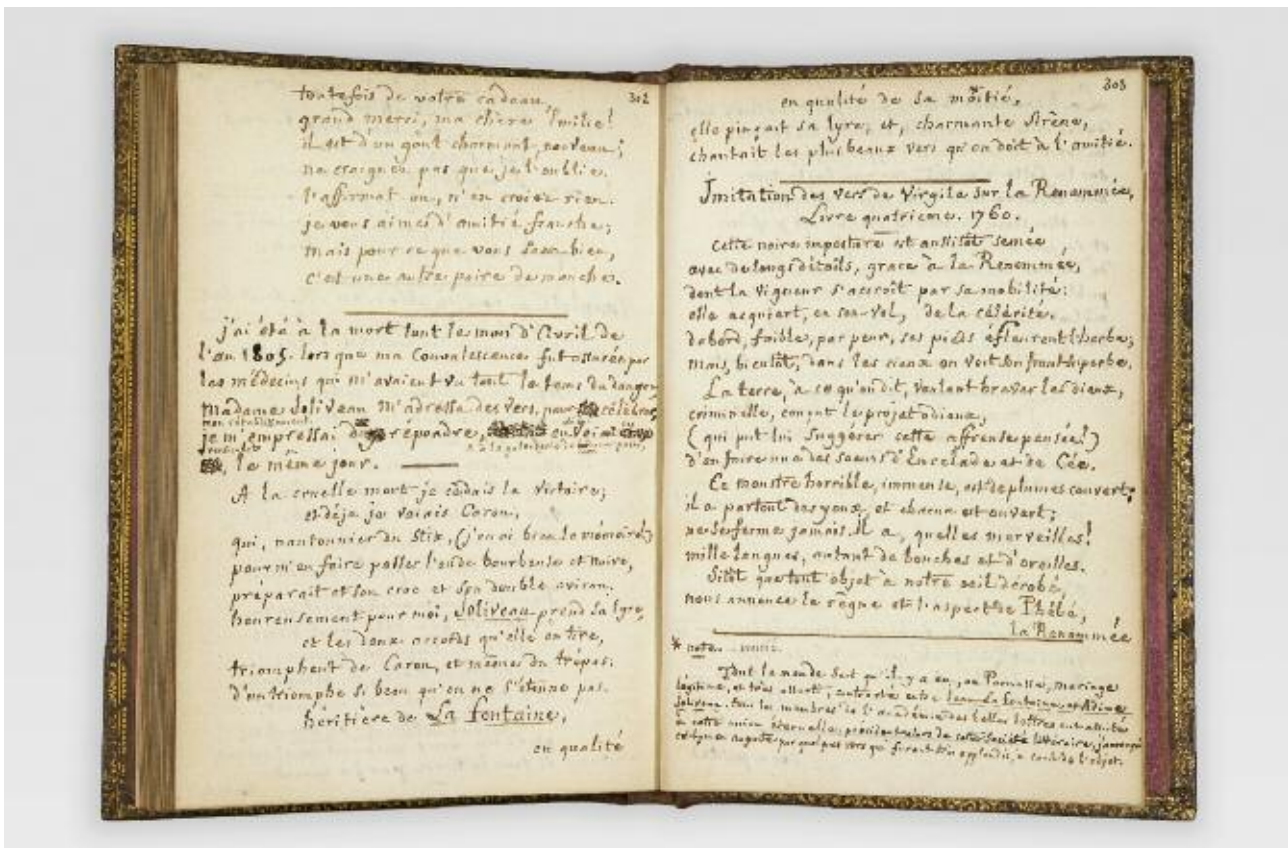 302
toutefois de votre cadeau,
grand merci, ma chère Emilie!
il est d'un goût charmant, nouveau;
ne craignez pas que je l'oublie.
l'affirmat on, n'en croiez rien.
je vous aimei d'amitié franche;
mais pour ce que vous savez bien,
c'est une autre paire de manches.
j'ai été à la mort tout le mois d'Avril de
l'an 1805. lors que ma Convalescence fut assurée par
les médecins qui m'avaient vu tout le tems du danger,
Madame Joliveau m'adressa des vers, pour célébrer
mon rétablissement
je m'empressai de répondre,
le même jour.
A la cruelle mort je cédais la Victoire;
et déja je voiais Caron,
qui, nautonnier du Stix, (j'en ai bien la mémoire)
pour m'en faire passer l'onde bourbeuse et noire,
préparait et son croc et son double aviron.
heureusement pour moi, Joliveau prend sa lyre,
et les doux accords qu'elle en tire,
triomphent de Caron, et même du trépas.
d'un triomphe si beau qu'on ne s'étonne pas.
héritière de La fontaine,
en qualité
303
en qualité de sa moitié,
elle pinçait sa lyre; et, charmante Sirène,
chantait les plus beaux vers qu'on doit à l'amitié.
Imitation des vers de Virgile sur la Renommée,
Livre quatrieme. 1760.
Cette noire imposture est aussitôt semée
avec de longs détails, grace à la Renommée,
dont la vigueur s'accroît par sa mobilité:
elle acquiert, en son vol, de la célérité.
dabord, faible, par peur, ses pieds éfleurent l'herbe;
mais, bientôt, dans les cieux on voit son front superbe.
La terre, à ce qu'on dit, voulant braver les dieux,
criminelle, conçut le projet odieux,
(qui put lui suggérer cette affreuse pensée!)
d'en faire une des soeurs d'Encelade et de Cée.
Ce monstre horrible, immense, est de plumes couvert;
il a partout des yeux, et chacun est ouvert;
ne se ferme jamais. il a, quelles merveilles!
mille langues, autant de bouches et d'oreilles.
Sitôt que tout objet à notre oeil dérobé,
nous annonce le règne et l'aspect de Phébé,
la Renommée
* note.
Tout le monde sait qu'il y a eu, au Parnasse, mariage
légitime, et très assorti, contracté entre Jean La fontaine, et Adine
Joliveau. tous les membres de l'académie des belles lettres ont assisté
à cette union éternelle; président alors de cette Société littéraire, j'annonçai
cet hymen auguste par quelques vers qui furent très applaudis, à cause de l'objet.